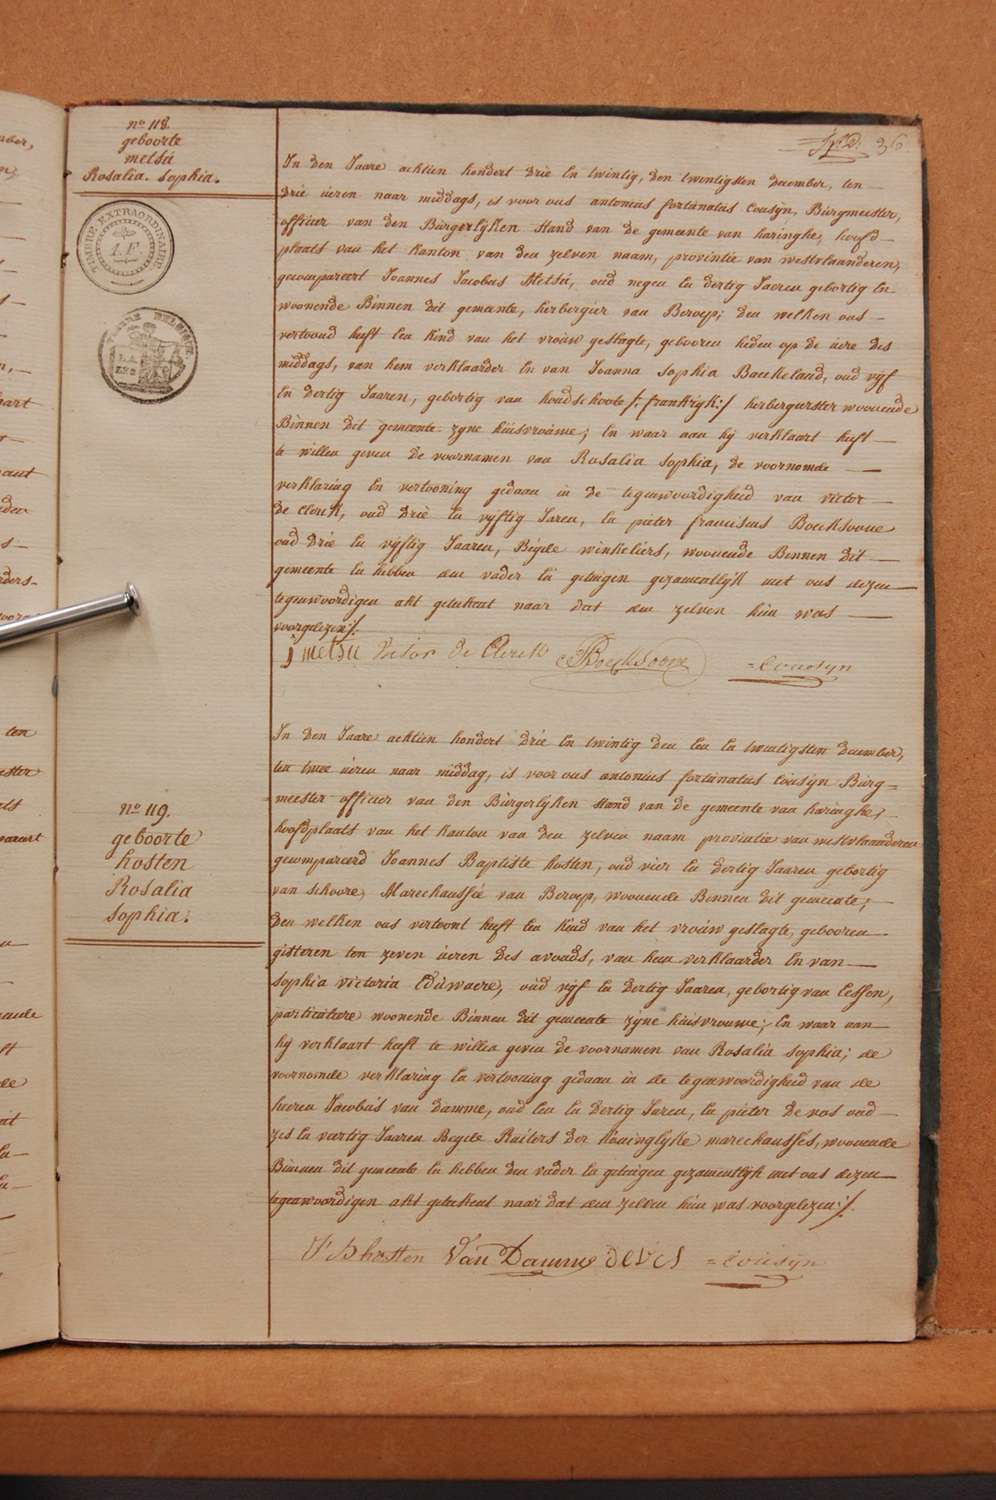 36
no 118.
geboorte
metsú
Rosalia. Sophia.
TIMBRE EXTRAORDINAIRE
1.F
In den Jaare achtien hondert drie En twintig, den twintigsten december, ten
drie úeren naar middags, is voor ons antonius fortúnatus Coúsÿn, Búrgmeester,
officier van den Búrgerlÿken stand van de gemeente van haringhe, hoofd-
plaats van het kanton van den zelven naam, provintie van westvlaanderen,
gecompareert Joannes Jacobus Metsú, oud negen En dertig Jaeren gebortig En
woonende Binnen dit gemeente, herbergier van Beroep; den welken ons
vertoond heeft Een kind van het vroúw geslagte, gebooren heden op de úere des
middags, van hem verklaarder En van Joanna Sophia Baekeland, oud vÿf
En dertig Jaaren, gebortig van hondschoote /: frankrÿk:/ herbergierster woonende
Binnen dit gemeente zÿne húisvroúwe; En waar aan hÿ verklaart heeft
te willen geven de voornamen van Rosalia Sophia, de voornomde
verklaring En vertooning gedaan in de tegenwoordigheid van victor
de Clerck, oud drie En vÿftig Jaren, En pieter franciscus Boecksoone
oud drie En vÿftig Jaaren, Beÿde winkeliers, woonende Binnen dit
gemeente En hebben den vader En getuigen gezamentlÿk met ons dezen
tegenwoordigen akt geteekent naar dat den zelven hún was
voorgelezen /.
j metsu Victor de Clerck Boecksoone =Coúsÿn
no 119.
geboorte
hosten
Rosalia
Sophia.
In den Jaare achtien hondert drie En twintig den Een En twentigsten december,
ten twee úeren naar middag, is voor ons antonius fortúnatus Coúsÿn Búrg=
meester officier van den Búrgerlÿken stand van de gemeente van haringhe,
hoofdplaats van het kanton van den zelven naam provintie van westvlaanderen
gecompareerd Joannes Baptiste hosten, oud vier En dertig Jaaren gebortig
van schoore, Marechaussée van Beroep, woonende Binnen dit gemeente;
den welken ons vertoont heeft Een kind van het vroúw geslagte, gebooren
gisteren ten zeven úeren des avonds, van hem verklaarder En van
Sophia victoria Edúwaere, oúd vÿf En dertig Jaaren, gebortig van Eessen,
particúliere woonende Binnen dit gemeente zÿne húisvrouwe; En waar aan
hÿ verklaart heeft te willen geven de voornamen van Rosalia Sophia; de
voornomde verklaring En vertooning gedaan in de tegenwoordigheid van de
heeren Jacobús van damme, oud Een En dertig Jaren, En pieter de vos oud
zes En veertig Jaaren Beÿde Ruiters der koninglÿke marechaussées, woonende
Binnen dit gemeente En hebben den vader En getuigen gezamentlÿk met ons dezen
tegenwoordigen akt geteekent naar dat den zelven hún was voorgelezen /.
J B hosten Van Damme deVos =Coúsÿn